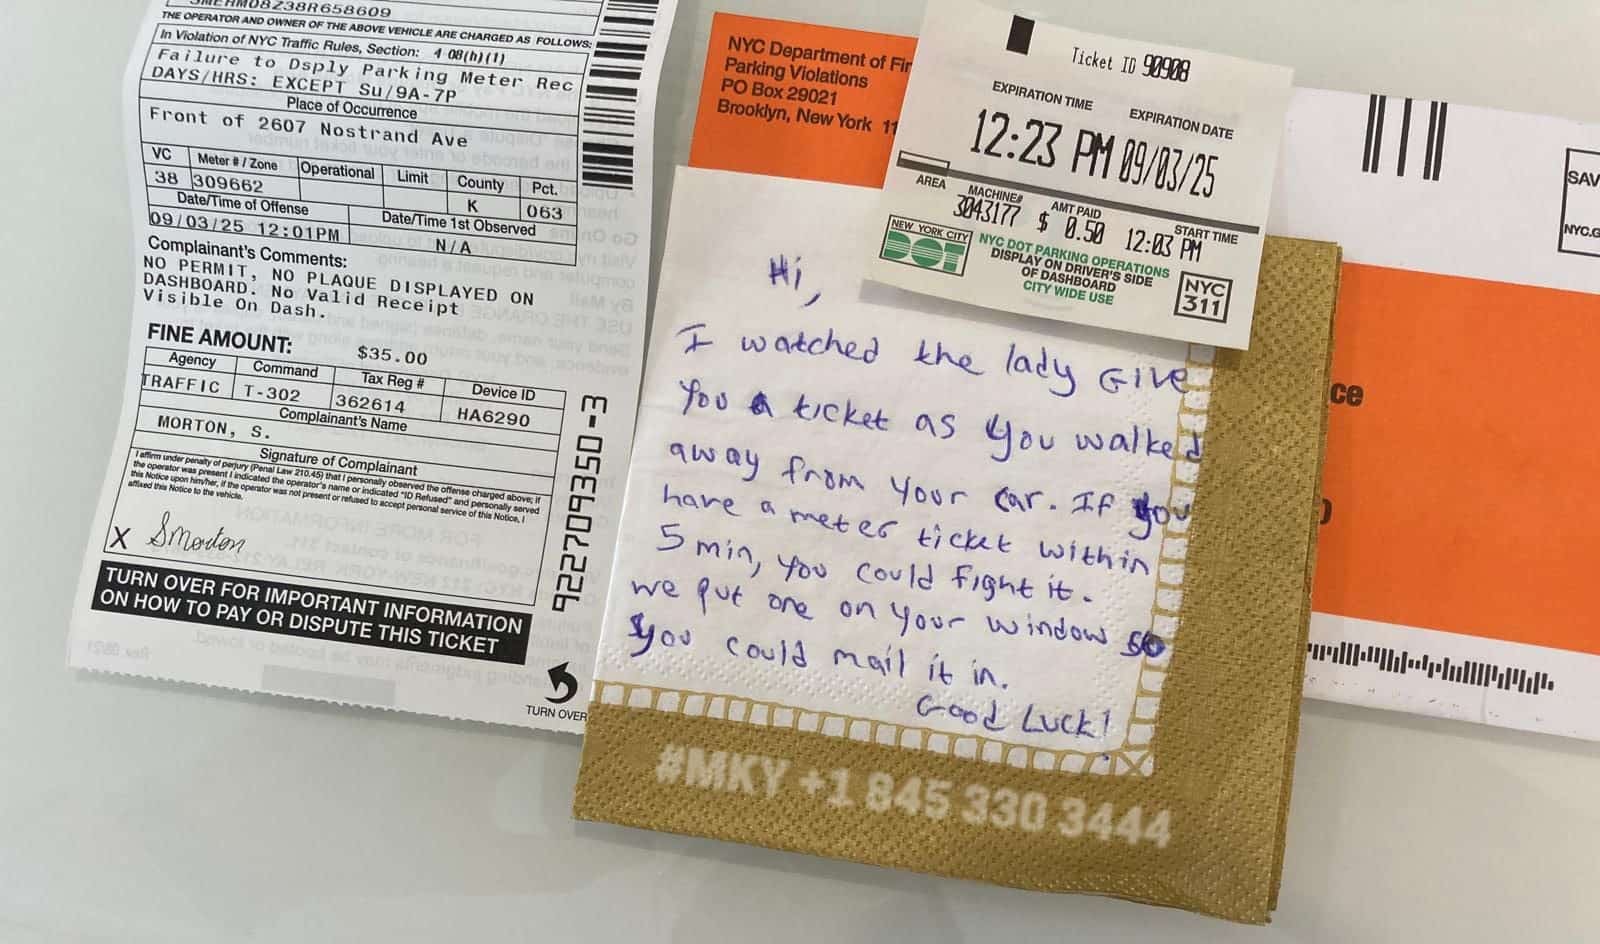 SMEHM08Z38R658609
THE OPERATOR AND OWNER OF THE ABOVE VEHICLE ARE CHARGED AS FOLLOWS:
In Violation of NYC Traffic Rules, Section: 4-08(h)(1)
Failure to Dsply Parking Meter Rec
DAYS/HRS: EXCEPT Su/9A-7P
Place of Occurrence
Front of 2607 Nostrand Ave
VC Meter # / Zone Operational Limit County Pct.
38 309662 K 063
Date/Time of Offense Date/Time 1st Observed
09/03/25 12:01PM N/A
Complainant's Comments:
NO PERMIT, NO PLAQUE DISPLAYED ON
DASHBOARD. No Valid Receipt
Visible On Dash.
FINE AMOUNT: $35.00
Agency Command Tax Reg # Device ID
TRAFFIC T-302 362614 HA6290
Complainant's Name
MORTON, S.
Signature of Complainant
I affirm under penalty of perjury (Penal Law 210.45) that I personally observed the offense charged above; if
the operator was present I indicated the operator's name or indicated "ID Refused" and personally served
this Notice upon him/her, if the operator was not present or refused to accept personal service of this Notice, I
affixed this Notice to the vehicle.
X SMorton
TURN OVER FOR IMPORTANT INFORMATION
ON HOW TO PAY OR DISPUTE THIS TICKET
TURN OVER
922709350-3
NYC Department of Fin
Parking Violations
PO Box 29021
Brooklyn, New York 11
Ticket ID 90908
EXPIRATION TIME EXPIRATION DATE
12:23 PM 09/03/25
AREA MACHINE# AMT PAID START TIME
3043177 $ 0.50 12:03 PM
NEW YORK CITY
DOT
NYC DOT PARKING OPERATIONS
DISPLAY ON DRIVER'S SIDE
OF DASHBOARD
CITY WIDE USE
NYC
311
Hi,
I watched the lady Give
You a ticket as you walked
away from your car. If you
have a meter ticket within
5 min, you could fight it.
we put one on your window so
you could mail it in.
Good Luck!
#MKY +1 845 330 3444
SAV
NYC.G
ce